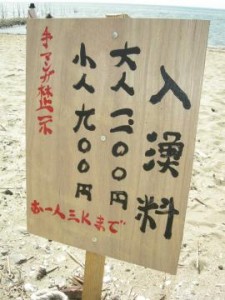 入漁料
大人 一二〇〇円
小人 九〇〇円
手マンガ禁止
お一人三Kまで